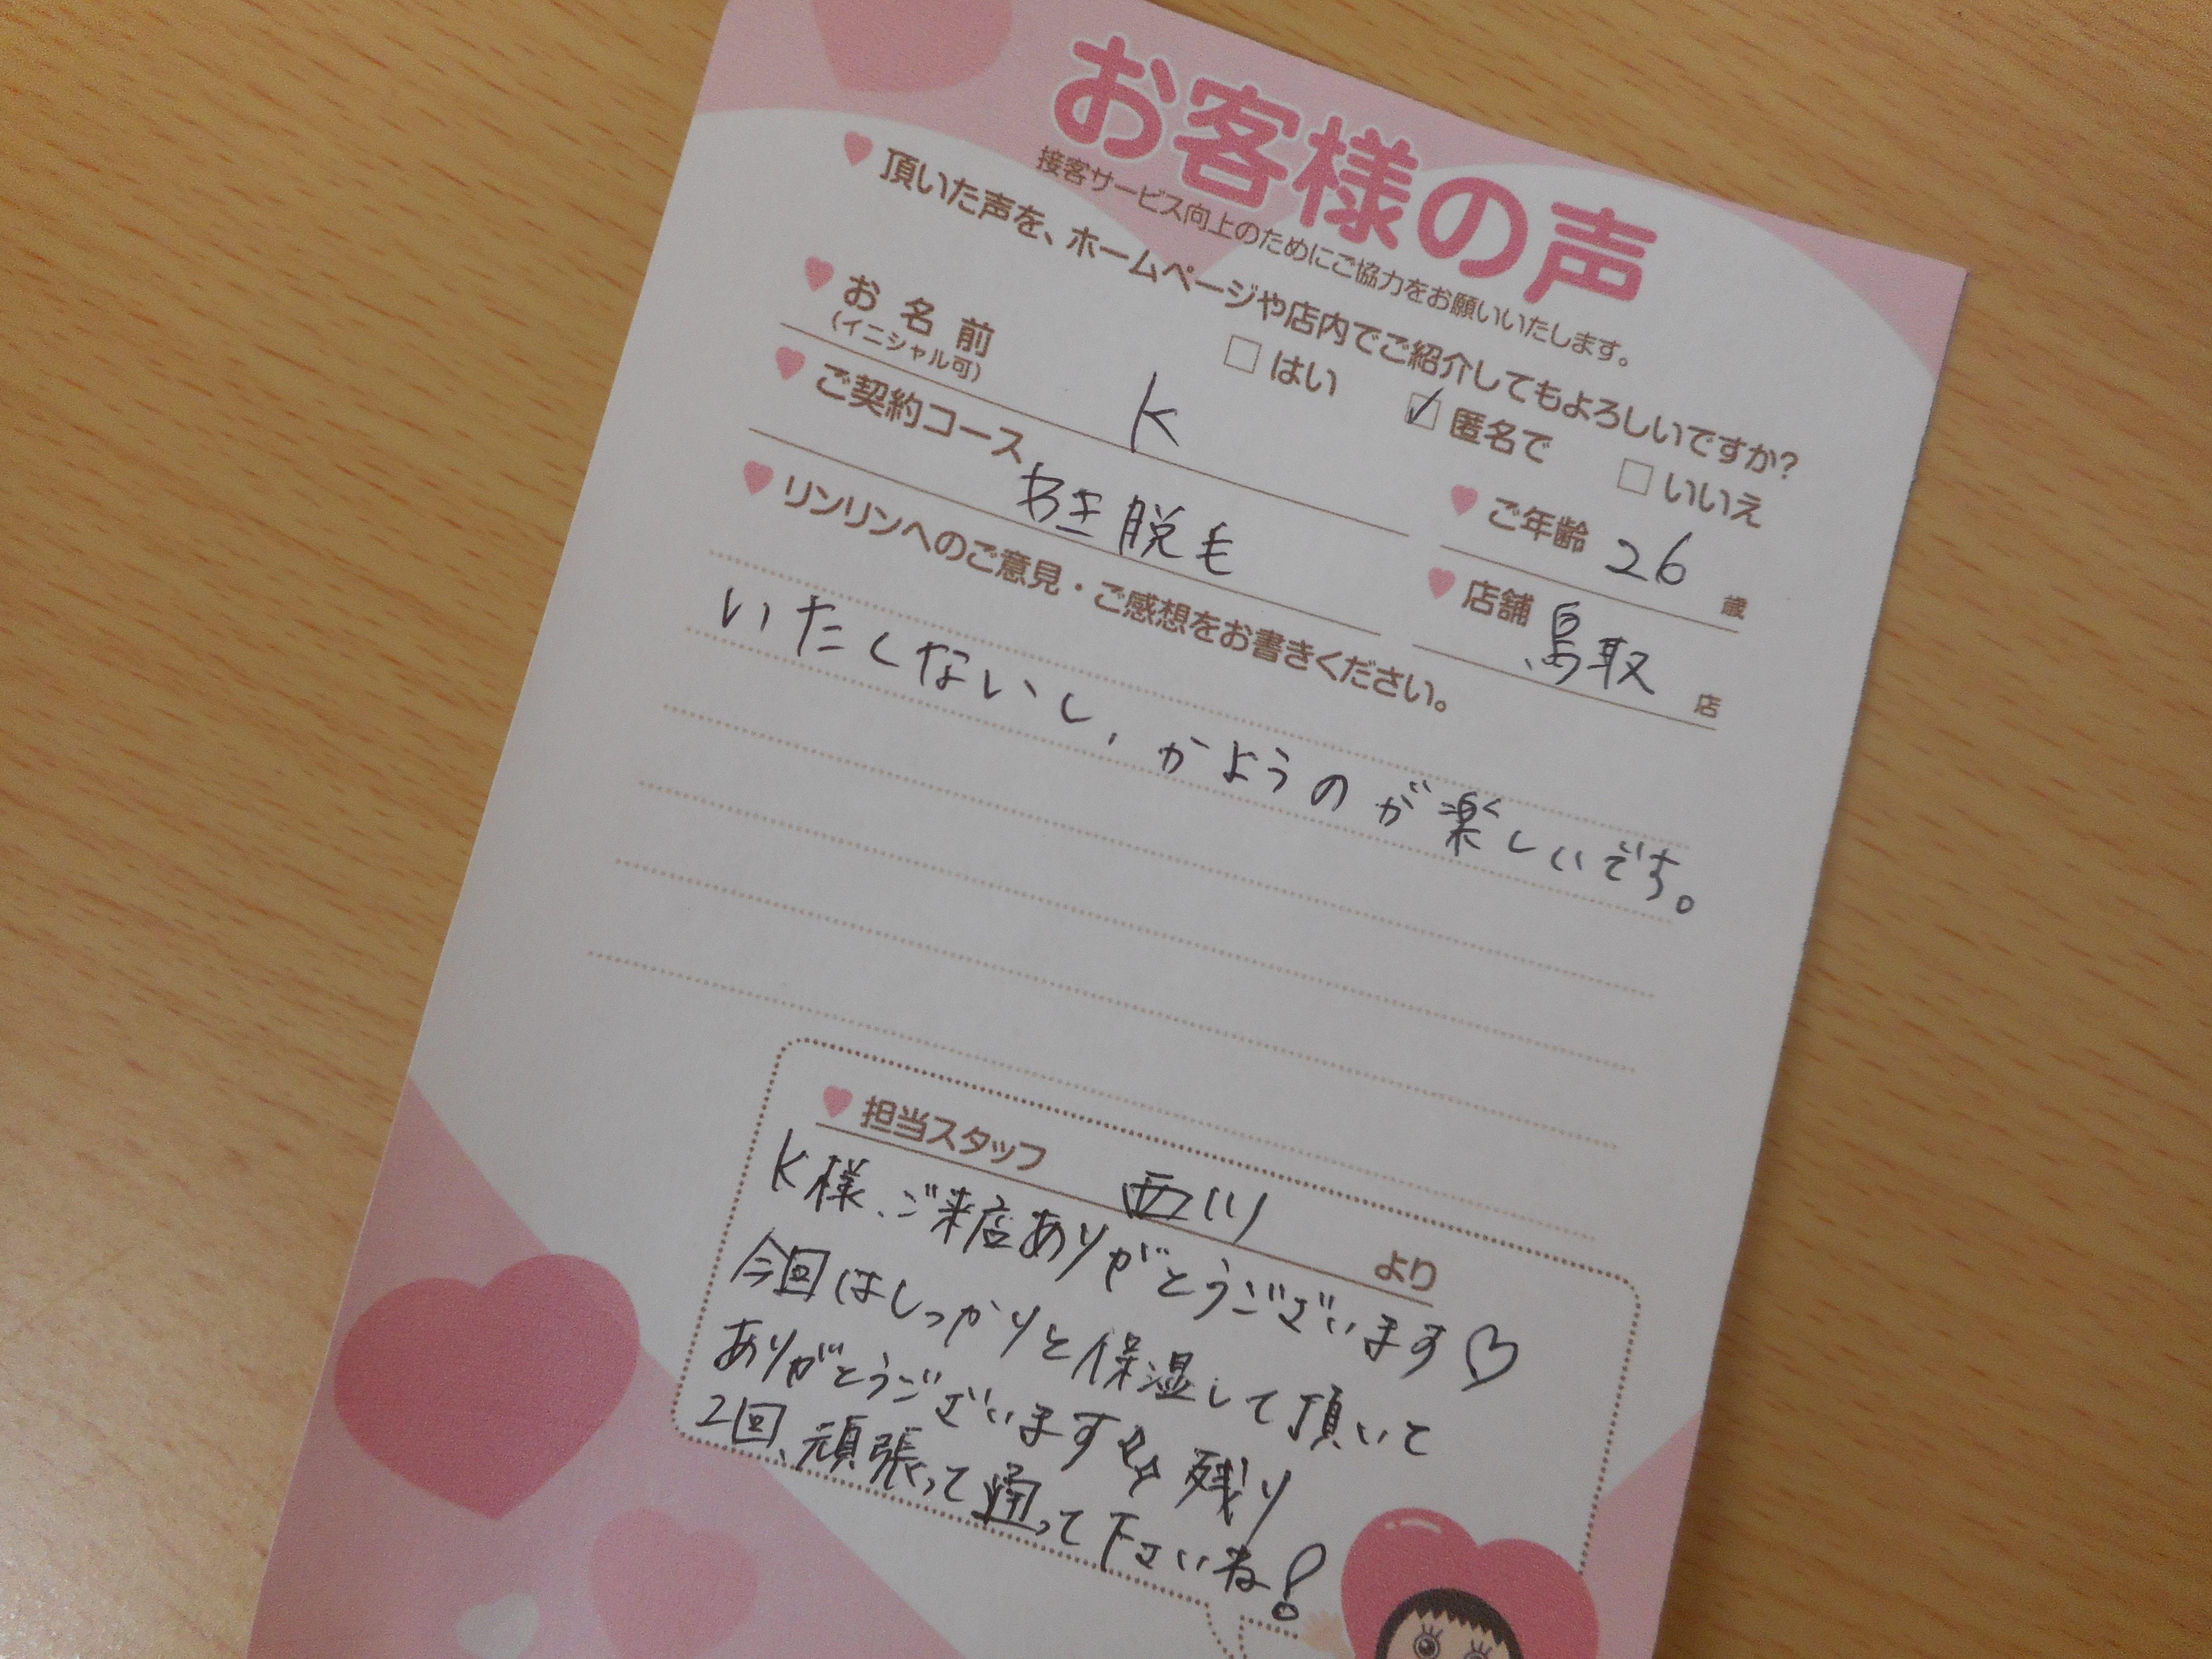 お客様の声
接客サービス向上のためにご協力をお願いいたします。
頂いた声を、ホームページや店内でご紹介してもよろしいですか?
はい 匿名で いいえ
お名前 K
(イニシャル可)
ご年齢 26 歳
ご契約コース わき脱毛
店舗 鳥取 店
リンリンへのご意見・ご感想をお書きください。
いたくないし、かようのが楽しいです。
担当スタッフ 西川 より
K様、ご来店ありがとうございます♡
今回はしっかりと保湿して頂いて
ありがとうございます 残り
2回、頑張って通って下さいね!